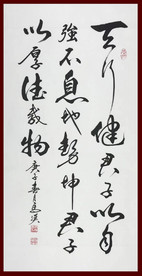 天行健君子以自
強不息地勢坤君子
以厚德載物
庚子春月